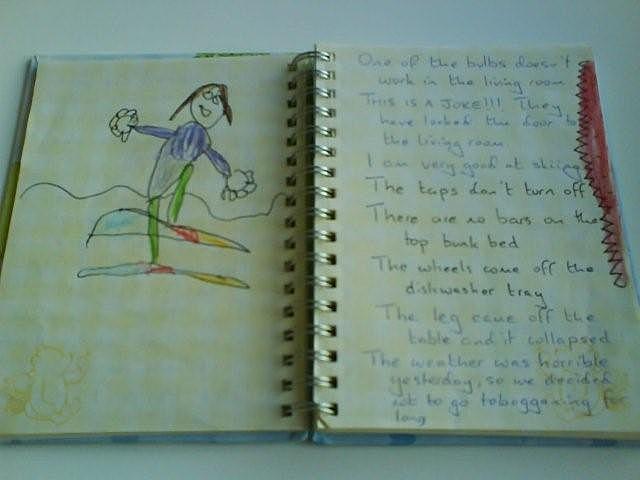 One of the bulbs doesn't
work in the living room
THIS IS A JOKE!!! They
have locked the door to
the living room
I am very good at skiing
The taps don't turn off
There are no bars on the
top bunk bed
The wheels come off the
dishwasher tray
The leg came off the
table and it collapsed
The weather was horrible
yesterday, so we decided
not to go tobogganing for
long